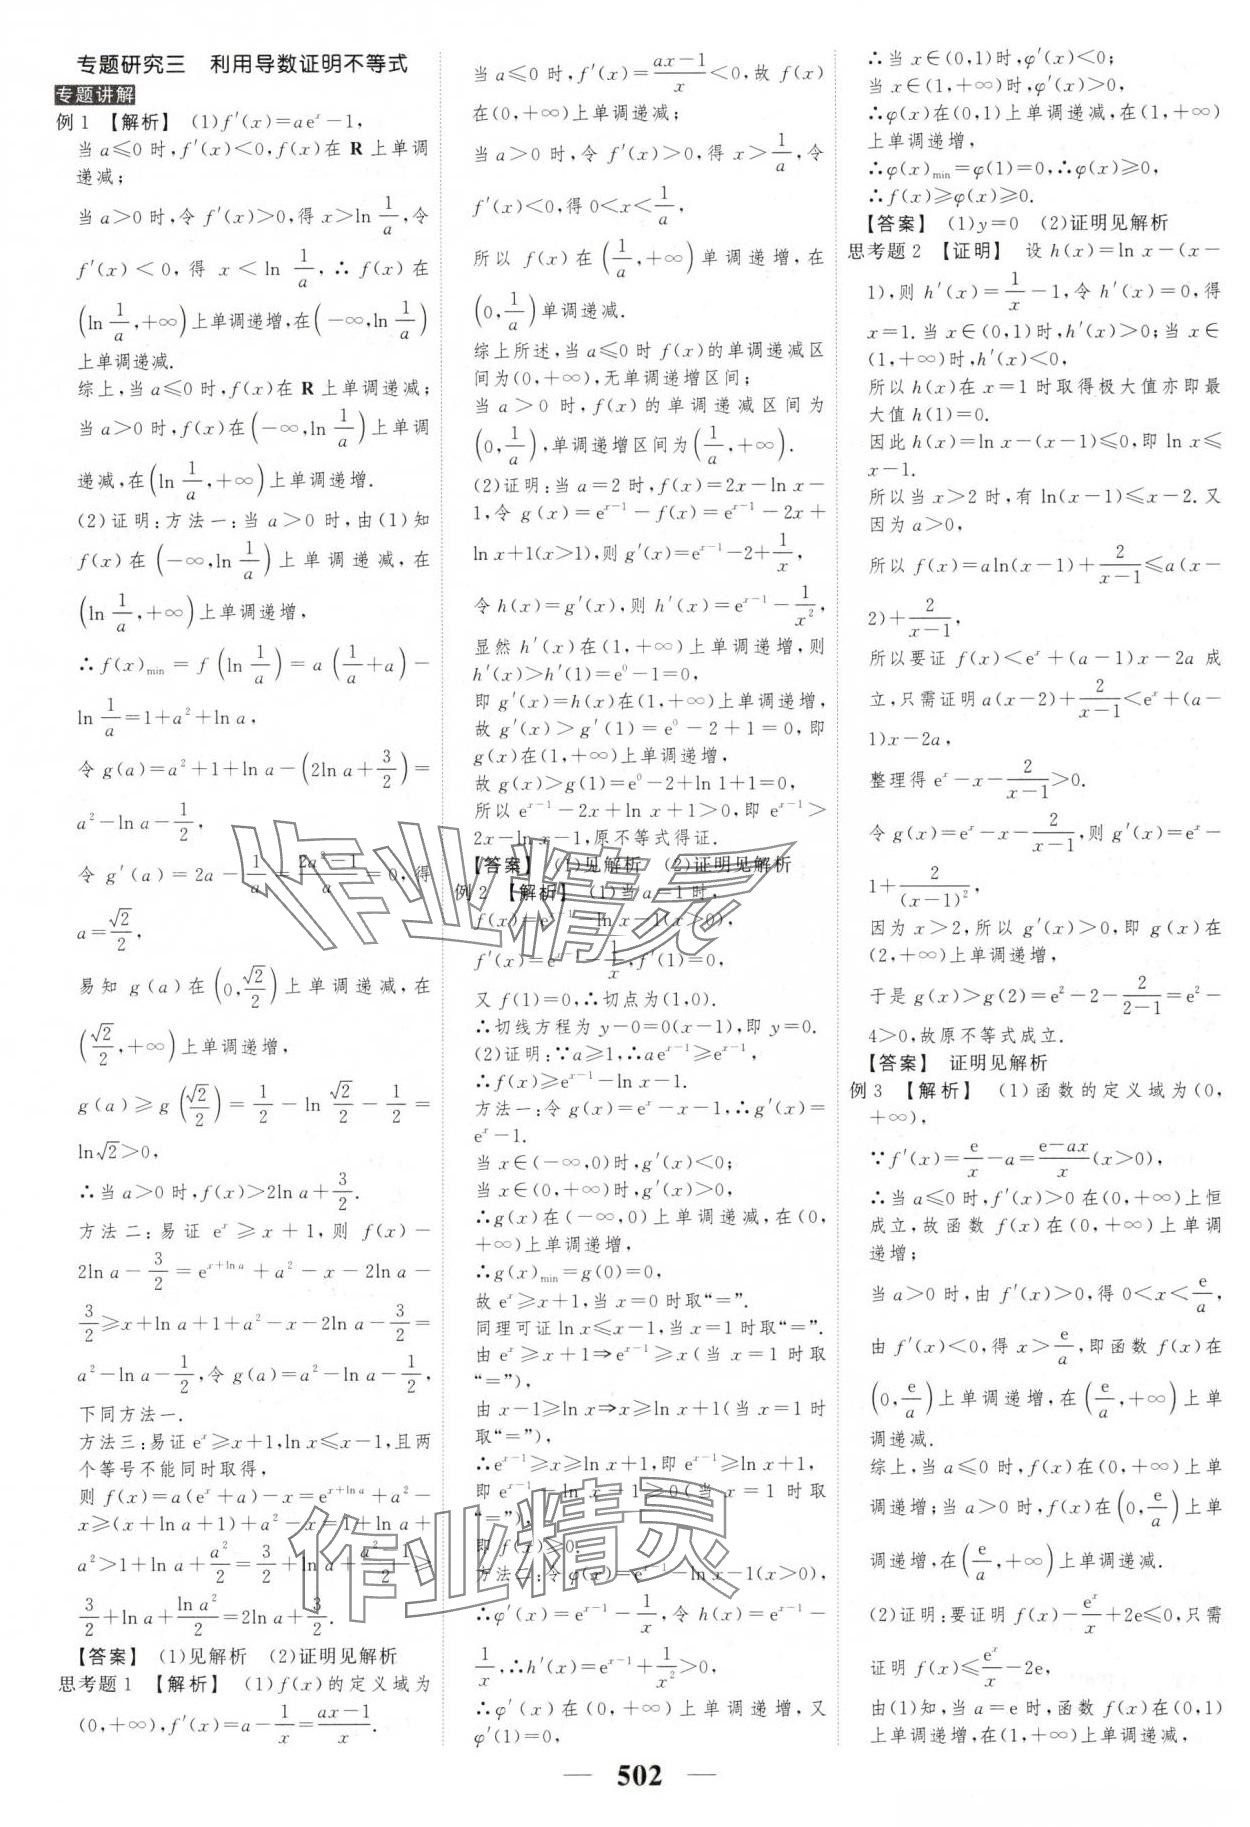 专题研究三　利用导数证明不等式
专题讲解
例 1 【解析】 (1)f′(x)=aeˣ-1,
当 a≤0 时,f′(x)<0,f(x)在 R 上单调
递减;
当 a>0 时,令 f′(x)>0,得 x>ln 1/a,令
f′(x)<0,得 x<ln 1/a,∴f(x)在
(ln 1/a,+∞)上单调递增,在(-∞,ln 1/a)
上单调递减.
综上,当 a≤0 时,f(x)在 R 上单调递减;
当 a>0 时,f(x)在(-∞,ln 1/a)上单调
递减,在(ln 1/a,+∞)上单调递增.
(2)证明:方法一:当 a>0 时,由(1)知
f(x)在(-∞,ln 1/a)上单调递减,在
(ln 1/a,+∞)上单调递增,
∴f(x)min=f(ln 1/a)=a(1/a+a)-
ln 1/a=1+a²+ln a,
令 g(a)=a²+1+ln a-(2ln a+3/2)=
a²-ln a-1/2,
令 g′(a)=2a-1/a=(2a²-1)/a=0,得
a=√2/2,
易知 g(a)在(0,√2/2)上单调递减,在
(√2/2,+∞)上单调递增,
g(a)≥g(√2/2)=1/2-ln √2/2-1/2=
ln√2>0,
∴当 a>0 时,f(x)>2ln a+3/2.
方法二:易证 eˣ≥x+1,则 f(x)-
2ln a-3/2=e^(x+ln a)+a²-x-2ln a-
3/2≥x+ln a+1+a²-x-2ln a-3/2=
a²-ln a-1/2,令 g(a)=a²-ln a-1/2,
下同方法一.
方法三:易证 eˣ≥x+1,ln x≤x-1,且两
个等号不能同时取得,
则 f(x)=a(eˣ+a)-x=e^(x+ln a)+a²-
x≥(x+ln a+1)+a²-x=1+ln a+
a²>1+ln a+a²/2=3/2+ln a+(a²-1)/2≥
3/2+ln a+(ln a²)/2=2ln a+3/2.
【答案】 (1)见解析 (2)证明见解析
思考题 1 【解析】 (1)f(x)的定义域为
(0,+∞),f′(x)=a-1/x=(ax-1)/x.
当 a≤0 时,f′(x)=(ax-1)/x<0,故 f(x)
在(0,+∞)上单调递减;
当 a>0 时,令 f′(x)>0,得 x>1/a,令
f′(x)<0,得 0<x<1/a,
所以 f(x)在(1/a,+∞)单调递增,在
(0,1/a)单调递减.
综上所述,当 a≤0 时 f(x)的单调递减区
间为(0,+∞),无单调递增区间;
当 a>0 时,f(x)的单调递减区间为
(0,1/a),单调递增区间为(1/a,+∞).
(2)证明:当 a=2 时,f(x)=2x-ln x-
1,令 g(x)=eˣ⁻¹-f(x)=eˣ⁻¹-2x+
ln x+1(x>1),则 g′(x)=eˣ⁻¹-2+1/x,
令 h(x)=g′(x),则 h′(x)=eˣ⁻¹-1/x²,
显然 h′(x)在(1,+∞)上单调递增,则
h′(x)>h′(1)=e⁰-1=0,
即 g′(x)=h(x)在(1,+∞)上单调递增,
故 g′(x)>g′(1)=e⁰-2+1=0,即
g(x)在(1,+∞)上单调递增,
故 g(x)>g(1)=e⁰-2+ln 1+1=0,
所以 eˣ⁻¹-2x+ln x+1>0,即 eˣ⁻¹>
2x-ln x-1,原不等式得证.
【答案】 (1)见解析 (2)证明见解析
例 2 【解析】 (1)当 a=1 时,
f(x)=eˣ⁻¹-ln x-1(x>0),
f′(x)=eˣ⁻¹-1/x,f′(1)=0,
又 f(1)=0,∴切点为(1,0).
∴切线方程为 y-0=0(x-1),即 y=0.
(2)证明:∵a≥1,∴aeˣ⁻¹≥eˣ⁻¹,
∴f(x)≥eˣ⁻¹-ln x-1.
方法一:令 g(x)=eˣ-x-1,∴g′(x)=
eˣ-1.
当 x∈(-∞,0)时,g′(x)<0;
当 x∈(0,+∞)时,g′(x)>0,
∴g(x)在(-∞,0)上单调递减,在(0,
+∞)上单调递增,
∴g(x)min=g(0)=0,
故 eˣ≥x+1,当 x=0 时取“=”.
同理可证 ln x≤x-1,当 x=1 时取“=”.
由 eˣ≥x+1⇒eˣ⁻¹≥x(当 x=1 时取
“=”),
由 x-1≥ln x⇒x≥ln x+1(当 x=1 时
取“=”),
∴eˣ⁻¹≥x≥ln x+1,即 eˣ⁻¹≥ln x+1,
即 eˣ⁻¹-ln x-1≥0(当 x=1 时取
“=”),
即 f(x)≥0.
方法二:令 φ(x)=eˣ⁻¹-ln x-1(x>0),
∴φ′(x)=eˣ⁻¹-1/x,令 h(x)=eˣ⁻¹-
1/x,∴h′(x)=eˣ⁻¹+1/x²>0,
∴φ′(x)在(0,+∞)上单调递增,又
φ′(1)=0,
∴当 x∈(0,1)时,φ′(x)<0;
当 x∈(1,+∞)时,φ′(x)>0,
∴φ(x)在(0,1)上单调递减,在(1,+∞)
上单调递增,
∴φ(x)min=φ(1)=0,∴φ(x)≥0,
∴f(x)≥φ(x)≥0.
【答案】 (1)y=0 (2)证明见解析
思考题 2 【证明】 设 h(x)=ln x-(x-
1),则 h′(x)=1/x-1,令 h′(x)=0,得
x=1.当 x∈(0,1)时,h′(x)>0;当 x∈
(1,+∞)时,h′(x)<0,
所以 h(x)在 x=1 时取得极大值亦即最
大值 h(1)=0.
因此 h(x)=ln x-(x-1)≤0,即 ln x≤
x-1.
所以当 x>2 时,有 ln(x-1)≤x-2.又
因为 a>0,
所以 f(x)=aln(x-1)+2/(x-1)≤a(x-
2)+2/(x-1),
所以要证 f(x)<eˣ+(a-1)x-2a 成
立,只需证明 a(x-2)+2/(x-1)<eˣ+(a-
1)x-2a,
整理得 eˣ-x-2/(x-1)>0.
令 g(x)=eˣ-x-2/(x-1),则 g′(x)=eˣ-
1+2/(x-1)²,
因为 x>2,所以 g′(x)>0,即 g(x)在
(2,+∞)上单调递增,
于是 g(x)>g(2)=e²-2-2/(2-1)=e²-
4>0,故原不等式成立.
【答案】 证明见解析
例 3 【解析】 (1)函数的定义域为(0,
+∞),
∵f′(x)=e/x-a=(e-ax)/x(x>0),
∴当 a≤0 时,f′(x)>0 在(0,+∞)上恒
成立,故函数 f(x)在(0,+∞)上单调
递增;
当 a>0 时,由 f′(x)>0,得 0<x<e/a,
由 f′(x)<0,得 x>e/a,即函数 f(x)在
(0,e/a)上单调递增,在(e/a,+∞)上单
调递减.
综上,当 a≤0 时,f(x)在(0,+∞)上单
调递增;当 a>0 时,f(x)在(0,e/a)上单
调递增,在(e/a,+∞)上单调递减.
(2)证明:要证明 xf(x)-eˣ+2ex≤0,只需
证明 f(x)≤eˣ/x-2e,
由(1)知,当 a=e 时,函数 f(x)在(0,1)
上单调递增,在(1,+∞)上单调递减,
502
作业精灵
作业精灵